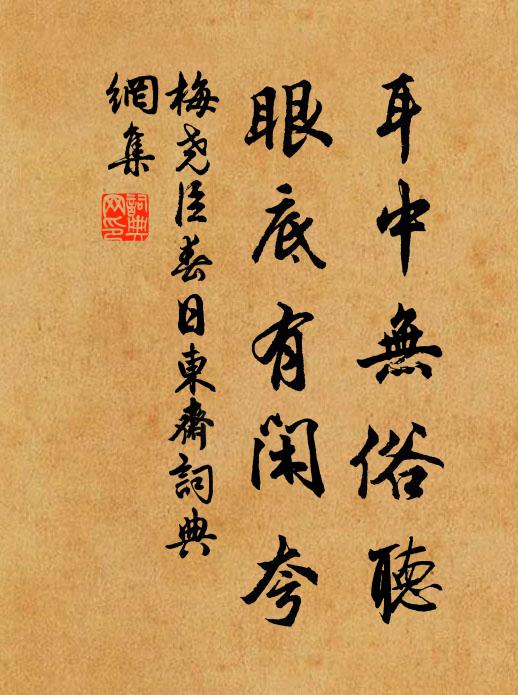 耳中無俗聴
眼底有閑夸
梅堯臣春日東齋詞典
網集
詞典網印